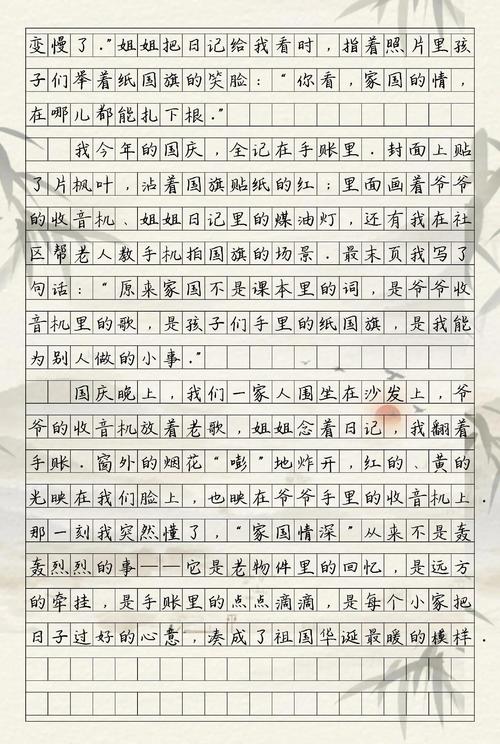 变慢了."姐姐把日记给我看时,指着照片里孩
子们举着纸国旗的笑脸:"你看,家国的情,
在哪儿都能扎下根."
我今年的国庆,全记在手账里.封面上贴
了片枫叶,沾着国旗贴纸的红;里面画着爷爷
的收音机、姐姐日记里的煤油灯,还有我在社
区帮老人教手机拍国旗的场景.最末页我写了
句话:"原来家国不是课本里的词,是爷爷收
音机里的歌,是孩子们手里的纸国旗,是我能
为别人做的小事."
国庆晚上,我们一家人围坐在沙发上,爷
爷的收音机放着老歌,姐姐念着日记,我翻着
手账.窗外的烟花"嘭"地炸开,红的、黄的
光映在我们脸上,也映在爷爷手里的收音机上.
那一刻我突然懂了,"家国情深"从来不是轰
轰烈烈的事——它是老物件里的回忆,是远方
的牵挂,是手账里的点点滴滴,是每个小家把
日子过好的心意,凑成了祖国华诞最暖的模样.